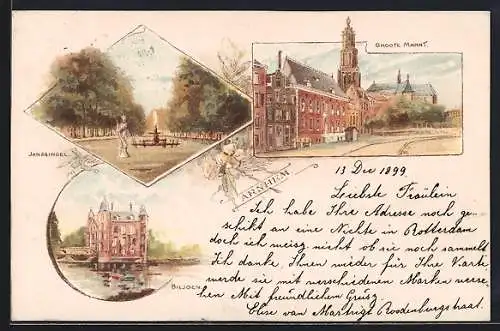 GROOTE MARKT.
JANSSINGEL.
ARNHEM
BILJOEN.
13 Dec 1899.
Liebste Fräulein
Ich habe Ihre Adresse noch ge-
schikt an eine Nichte in Rotterdam
doch ich meisz nicht ob sie noch sammelt
Ich danke Ihnen wieder für Ihre Karte
werde sie mit verschiedenen Marken verse-
hen Mit freundlichem Grusz
Elise van Roodenburgstraat.